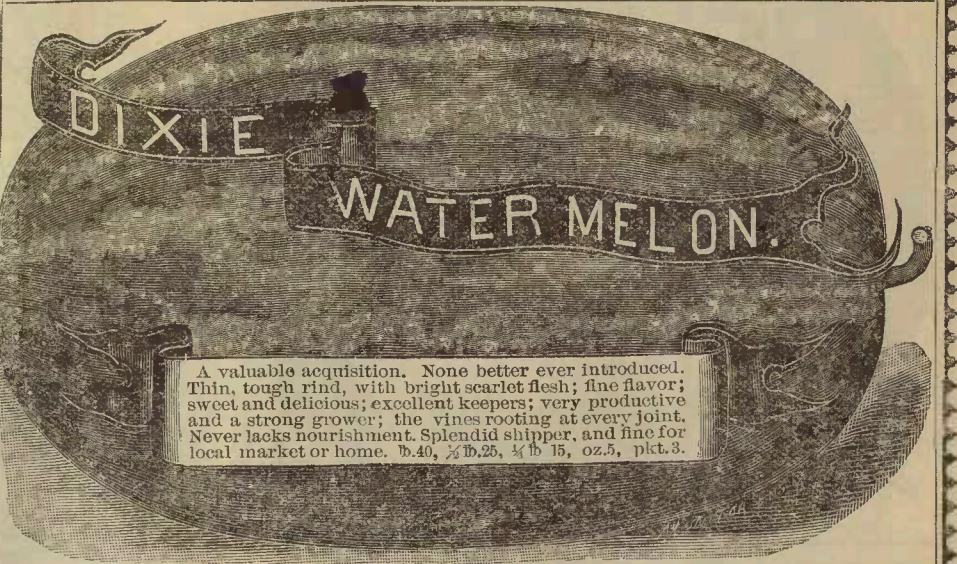 DIXIE
WATER MELON.
A valuable acquisition. None better ever introduced.
Thin, tough rind, with bright scarlet flesh; fine flavor;
sweet and delicious; excellent keepers; very productive
and a strong grower; the vines rooting at every joint.
Never lacks nourishment. Splendid shipper, and fine for
local market or home. ℔.40, ½ ℔.25, ¼ ℔ 15, oz.5, pkt.3.